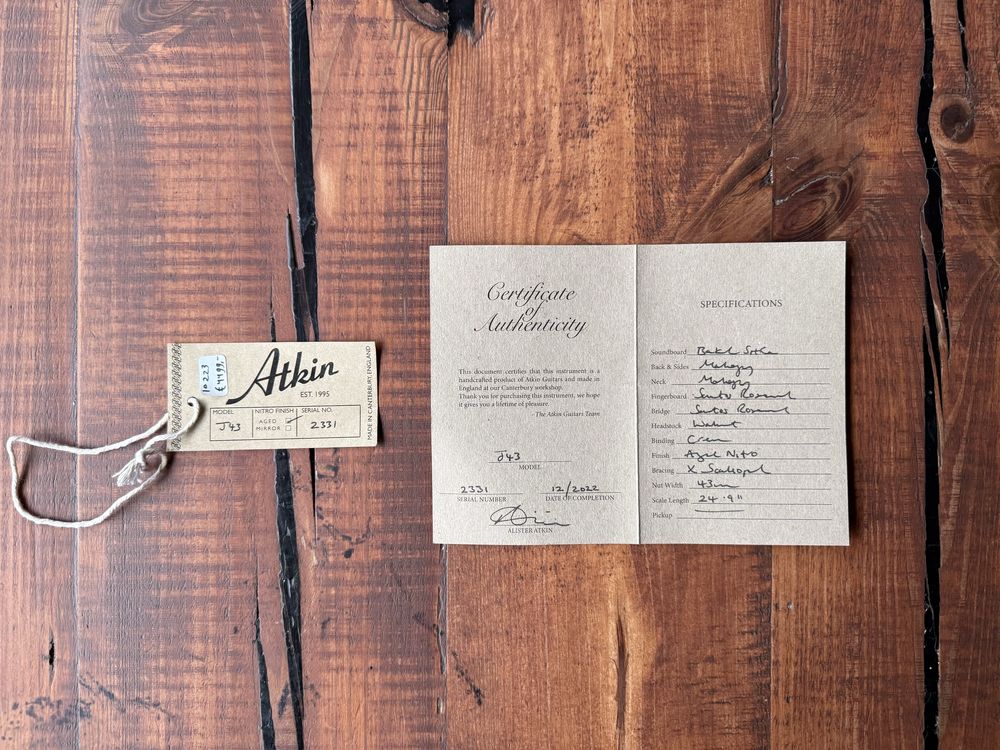 10223
€4499,-
Atkin
EST. 1995
MODEL
J43
NITRO FINISH
AGED
MIRROR
SERIAL NO.
2331
MADE IN CANTERBURY, ENGLAND
Certificate
of
Authenticity
This document certifies that this instrument is a
handcrafted product of Atkin Guitars and made in
England at our Canterbury workshop.
Thank you for purchasing this instrument, we hope
it gives you a lifetime of pleasure.
- The Atkin Guitars Team
J43
MODEL
2331
SERIAL NUMBER
12/2022
DATE OF COMPLETION
ALISTER ATKIN
SPECIFICATIONS
Soundboard Baked Sitka
Back & Sides Mahogany
Neck Mahogany
Fingerboard Santos Rosewood
Bridge Santos Rosewood
Headstock Walnut
Binding Cream
Finish Aged Nitro
Bracing X Scalloped
Nut Width 43mm
Scale Length 24.9"
Pickup